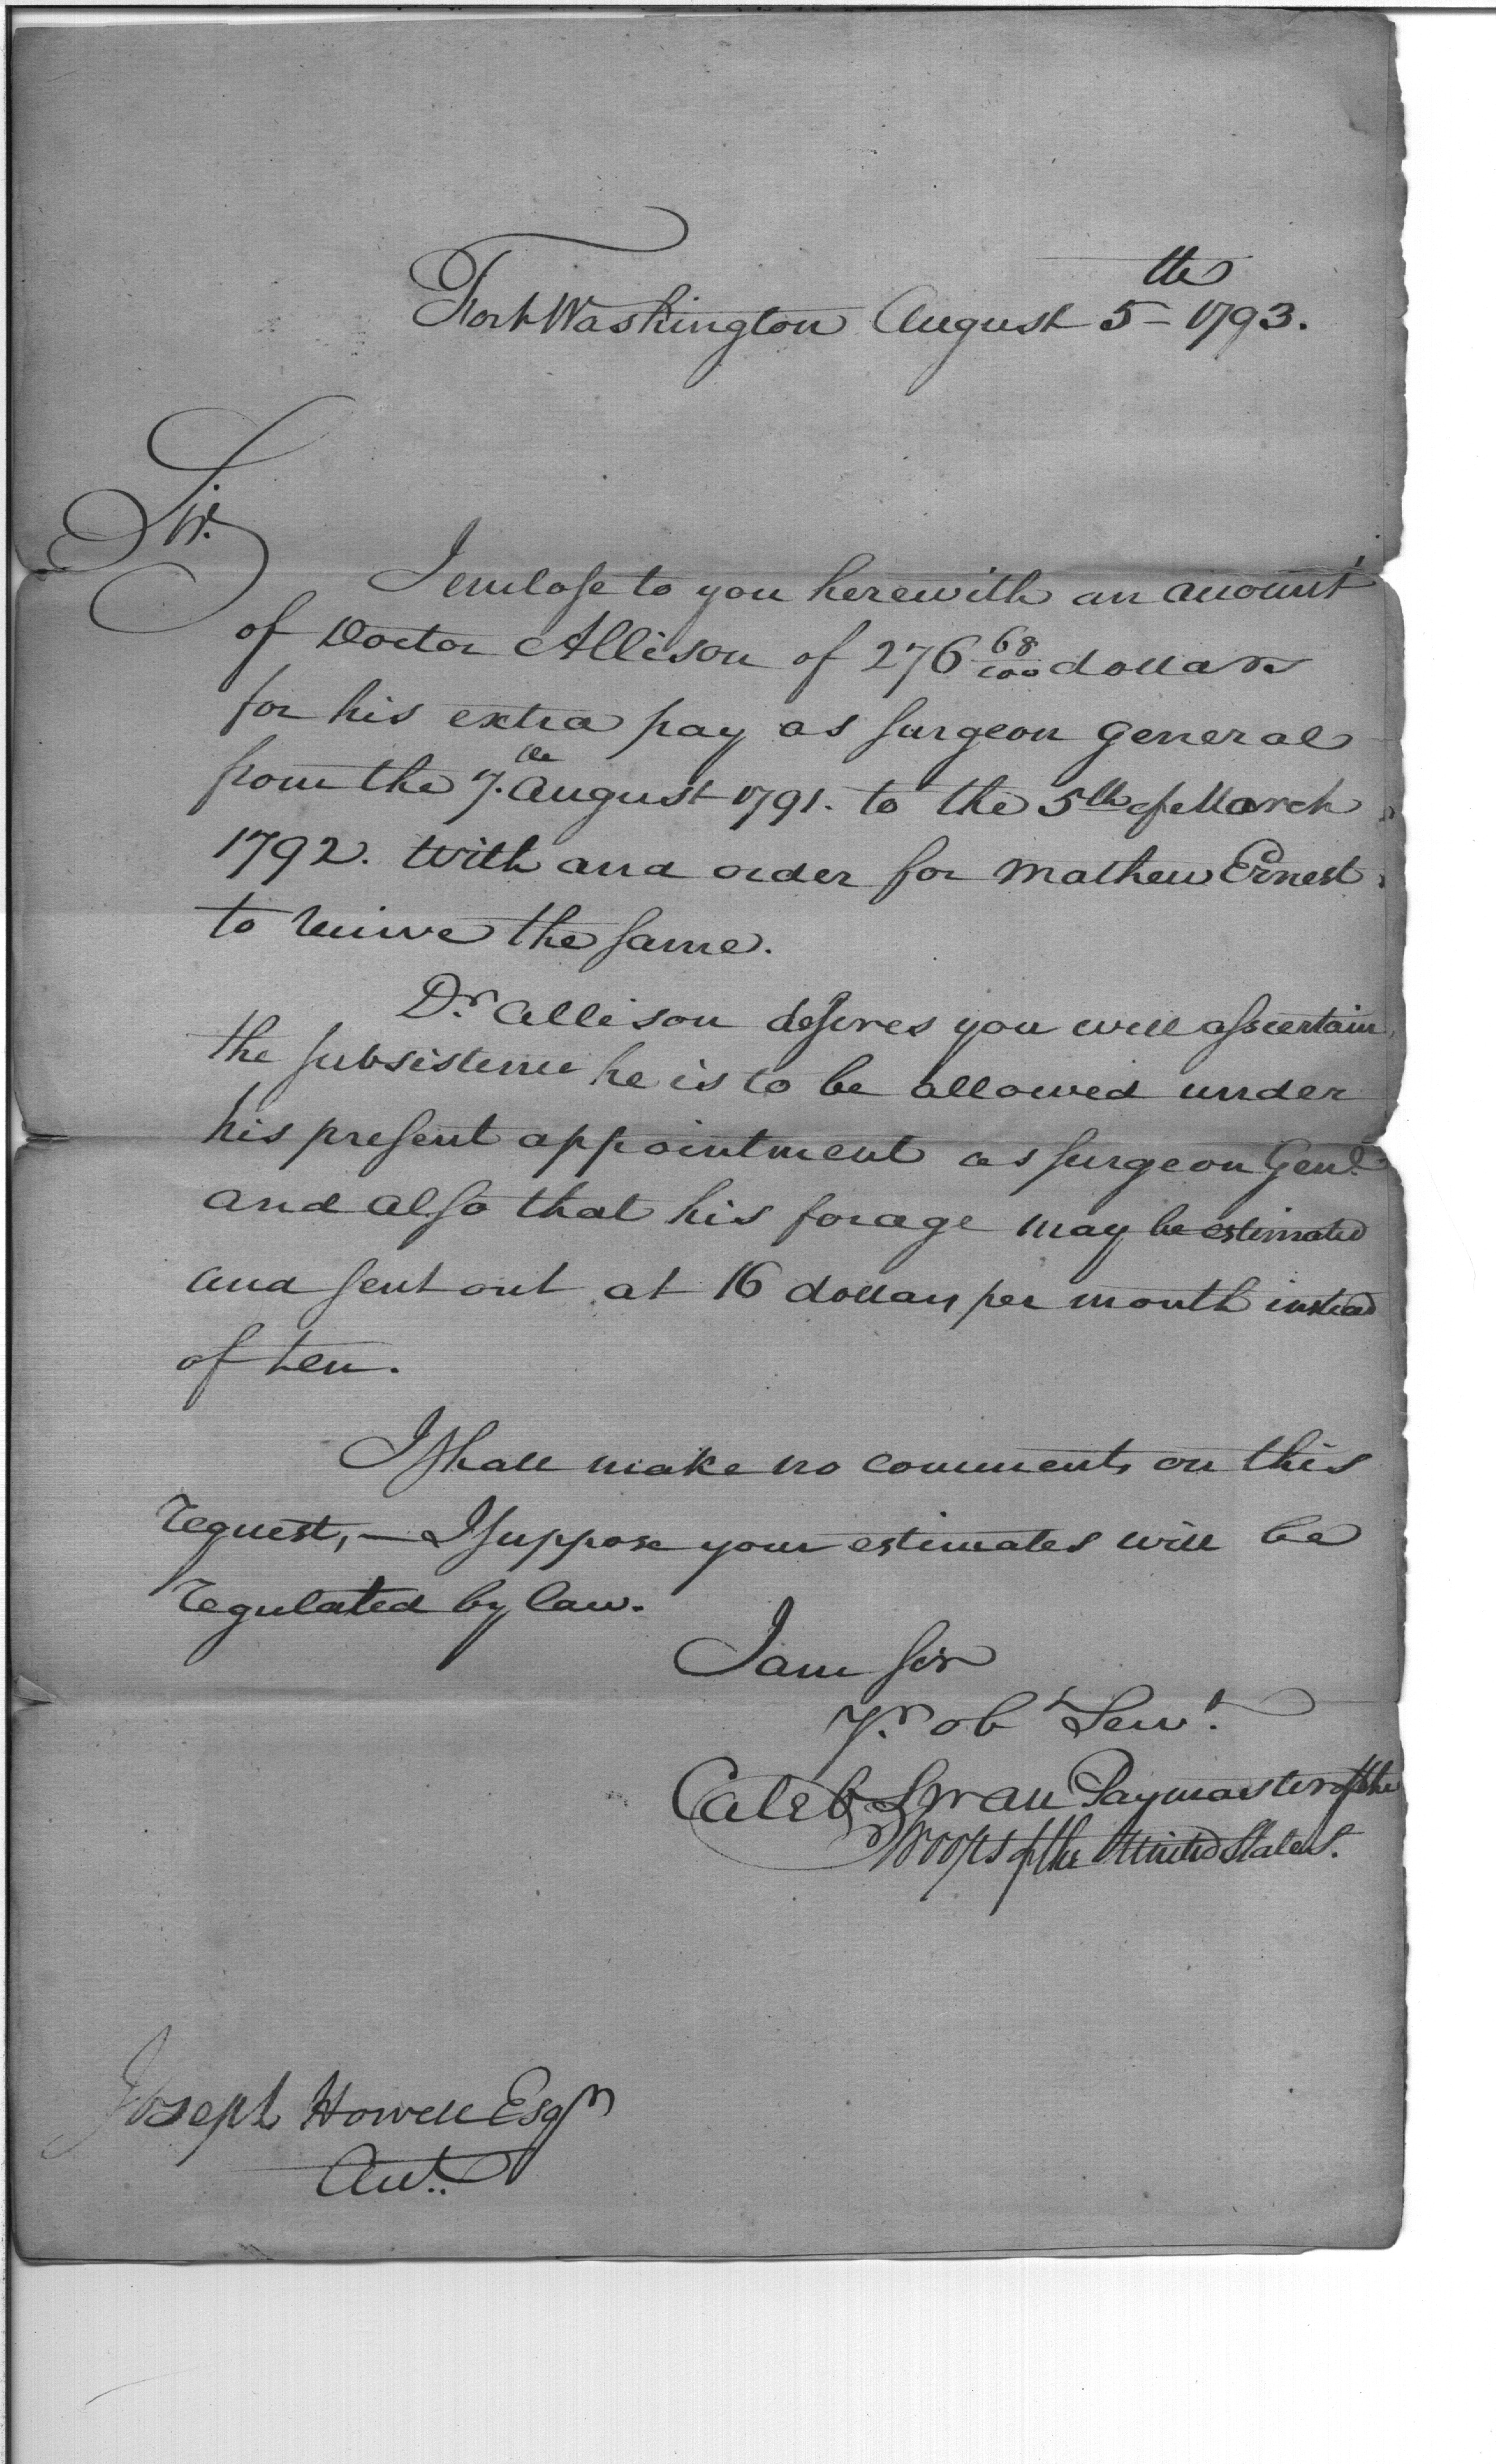 Fort Washington August 5th 1793.
Sir.
I enclose to you herewith an account
of Doctor Allison of 276 68/100 dollars
for his extra pay as surgeon General
from the 7.th August 1791. to the 5th of March
1792. With and order for Mathew Ernest
to receive the same.
Dr. Allison desires you will assertain
the subsistence he is to be allowed under
his present appointment as surgeon Genl.
and also that his forage may be estimated
and sent out at 16 dollars per month instead
of ten.
I shall make no comments on this
request, — I suppose your estimates will be
regulated by law.
I am sir
Yr. obt Servt.
Caleb Swan Paymaster of the
Troops of the United States.
Joseph Howell Esqr
Acct.